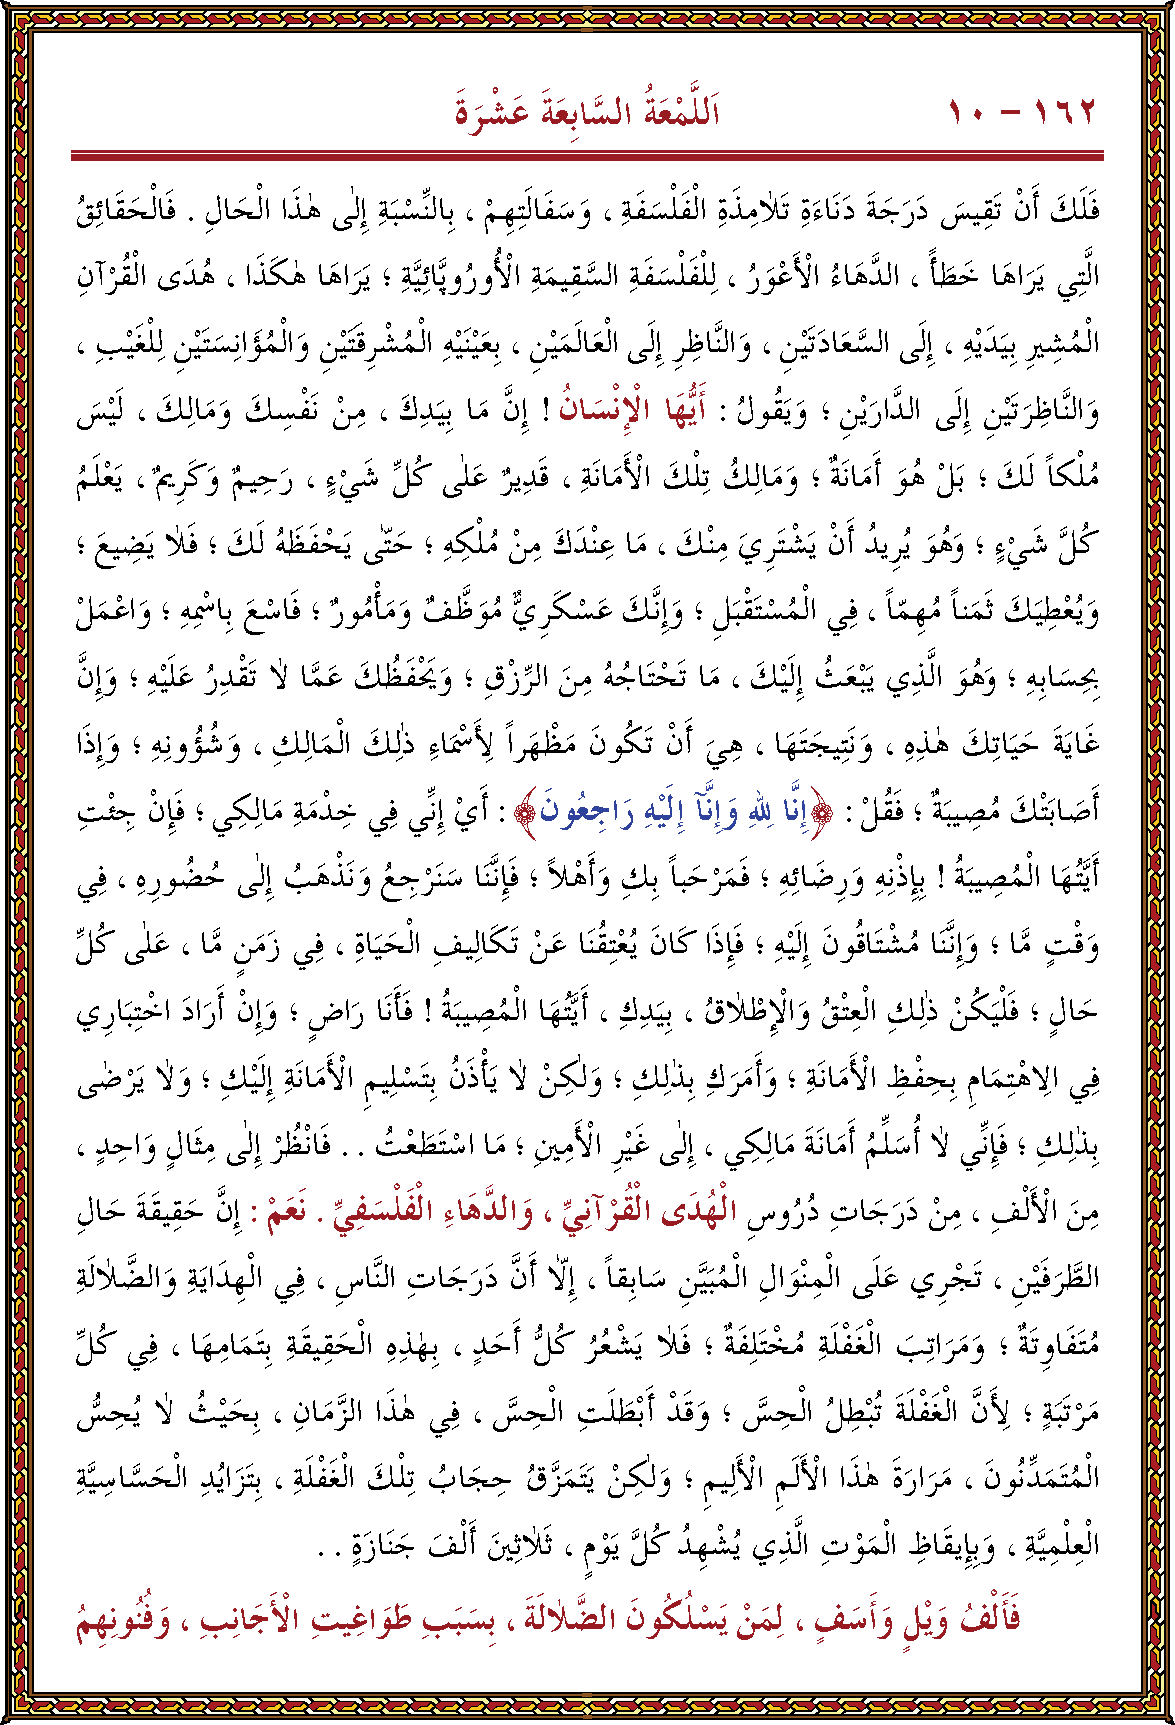 ١٦٢ - ١٠ اَللَّمْعَةُ السَّابِعَةَ عَشْرَةَ
فَلَكَ أَنْ تَقِيسَ دَرَجَةَ دَنَاءَةِ تَلاٰمِذَةِ الْفَلْسَفَةِ ، وَسَفَالَتِهِمْ ، بِالنِّسْبَةِ إِلٰى هٰذَا الْحَالِ . فَالْحَقَائِقُ
الَّتِي يَرَاهَا خَطَأً ، الدَّهَاءُ الْأَعْوَرُ ، لِلْفَلْسَفَةِ السَّقِيمَةِ الْأُورُوپَّائِيَّةِ ؛ يَرَاهَا هٰكَذَا ، هُدَى الْقُرْآنِ
الْمُشِيرِ بِيَدَيْهِ ، إِلَى السَّعَادَتَيْنِ ، وَالنَّاظِرِ إِلَى الْعَالَمَيْنِ ، بِعَيْنَيْهِ الْمُشْرِقَتَيْنِ وَالْمُؤَانِسَتَيْنِ لِلْغَيْبِ ،
وَالنَّاظِرَتَيْنِ إِلَى الدَّارَيْنِ ؛ وَيَقُولُ : أَيُّهَا الْإِنْسَانُ ! إِنَّ مَا بِيَدِكَ ، مِنْ نَفْسِكَ وَمَالِكَ ، لَيْسَ
مُلْكاً لَكَ ؛ بَلْ هُوَ أَمَانَةٌ ؛ وَمَالِكُ تِلْكَ الْأَمَانَةِ ، قَدِيرٌ عَلٰى كُلِّ شَيْءٍ ، رَحِيمٌ وَكَرِيمٌ ، يَعْلَمُ
كُلَّ شَيْءٍ ؛ وَهُوَ يُرِيدُ أَنْ يَشْتَرِيَ مِنْكَ ، مَا عِنْدَكَ مِنْ مُلْكِهِ ؛ حَتّٰى يَحْفَظَهُ لَكَ ؛ فَلاٰ يَضِيعَ ؛
وَيُعْطِيَكَ ثَمَناً مُهِمّاً ، فِي الْمُسْتَقْبَلِ ؛ وَإِنَّكَ عَسْكَرِيٌّ مُوَظَّفٌ وَمَأْمُورٌ ؛ فَاسْعَ بِاسْمِهِ ؛ وَاعْمَلْ
بِحِسَابِهِ ؛ وَهُوَ الَّذِي يَبْعَثُ إِلَيْكَ ، مَا تَحْتَاجُهُ مِنَ الرِّزْقِ ؛ وَيَحْفَظُكَ عَمَّا لاٰ تَقْدِرُ عَلَيْهِ ؛ وَإِنَّ
غَايَةَ حَيَاتِكَ هٰذِهِ ، وَنَتِيجَتَهَا ، هِيَ أَنْ تَكُونَ مَظْهَراً لِأَسْمَاءِ ذٰلِكَ الْمَالِكِ ، وَشُؤُونِهِ ؛ وَإِذَا
أَصَابَتْكَ مُصِيبَةٌ ؛ فَقُلْ : ﴿إِنَّا لِلّٰهِ وَإِنَّآ إِلَيْهِ رَاجِعُونَ﴾ : أَيْ إِنِّي فِي خِدْمَةِ مَالِكِي ؛ فَإِنْ جِئْتِ
أَيَّتُهَا الْمُصِيبَةُ ! بِإِذْنِهِ وَرِضَائِهِ ؛ فَمَرْحَباً بِكِ وَأَهْلاً ؛ فَإِنَّنَا سَنَرْجِعُ وَنَذْهَبُ إِلٰى حُضُورِهِ ، فِي
وَقْتٍ مَّا ؛ وَإِنَّنَا مُشْتَاقُونَ إِلَيْهِ ؛ فَإِذَا كَانَ يُعْتِقُنَا عَنْ تَكَالِيفِ الْحَيَاةِ ، فِي زَمَنٍ مَّا ، عَلٰى كُلِّ
حَالٍ ؛ فَلْيَكُنْ ذٰلِكِ الْعِتْقُ وَالْإِطْلاٰقُ ، بِيَدِكِ ، أَيَّتُهَا الْمُصِيبَةُ ! فَأَنَا رَاضٍ ؛ وَإِنْ أَرَادَ اخْتِبَارِي
فِي الِاهْتِمَامِ بِحِفْظِ الْأَمَانَةِ ؛ وَأَمَرَكِ بِذٰلِكِ ؛ وَلٰكِنْ لاٰ يَأْذَنُ بِتَسْلِيمِ الْأَمَانَةِ إِلَيْكِ ؛ وَلاٰ يَرْضٰى
بِذٰلِكِ ؛ فَإِنِّي لاٰ أُسَلِّمُ أَمَانَةَ مَالِكِي ، إِلٰى غَيْرِ الْأَمِينِ ؛ مَا اسْتَطَعْتُ . . فَانْظُرْ إِلٰى مِثَالٍ وَاحِدٍ ،
مِنَ الْأَلْفِ ، مِنْ دَرَجَاتِ دُرُوسِ الْهُدَى الْقُرْآنِيِّ ، وَالدَّهَاءِ الْفَلْسَفِيِّ . نَعَمْ : إِنَّ حَقِيقَةَ حَالِ
الطَّرَفَيْنِ ، تَجْرِي عَلَى الْمِنْوَالِ الْمُبَيَّنِ سَابِقاً ، إِلاّٰ أَنَّ دَرَجَاتِ النَّاسِ ، فِي الْهِدَايَةِ وَالضَّلاٰلَةِ
مُتَفَاوِتَةٌ ؛ وَمَرَاتِبَ الْغَفْلَةِ مُخْتَلِفَةٌ ؛ فَلاٰ يَشْعُرُ كُلُّ أَحَدٍ ، بِهٰذِهِ الْحَقِيقَةِ بِتَمَامِهَا ، فِي كُلِّ
مَرْتَبَةٍ ؛ لِأَنَّ الْغَفْلَةَ تُبْطِلُ الْحِسَّ ؛ وَقَدْ أَبْطَلَتِ الْحِسَّ ، فِي هٰذَا الزَّمَانِ ، بِحَيْثُ لاٰ يُحِسُّ
الْمُتَمَدِّنُونَ ، مَرَارَةَ هٰذَا الْأَلَمِ الْأَلِيمِ ؛ وَلٰكِنْ يَتَمَزَّقُ حِجَابُ تِلْكَ الْغَفْلَةِ ، بِتَزَايُدِ الْحَسَّاسِيَّةِ
الْعِلْمِيَّةِ ، وَبِإِيقَاظِ الْمَوْتِ الَّذِي يُشْهِدُ كُلَّ يَوْمٍ ، ثَلاٰثِينَ أَلْفَ جَنَازَةٍ . .
فَأَلْفُ وَيْلٍ وَأَسَفٍ ، لِمَنْ يَسْلُكُونَ الضَّلاٰلَةَ ، بِسَبَبِ طَوَاغِيتِ الْأَجَانِبِ ، وَفُنُونِهِمُ